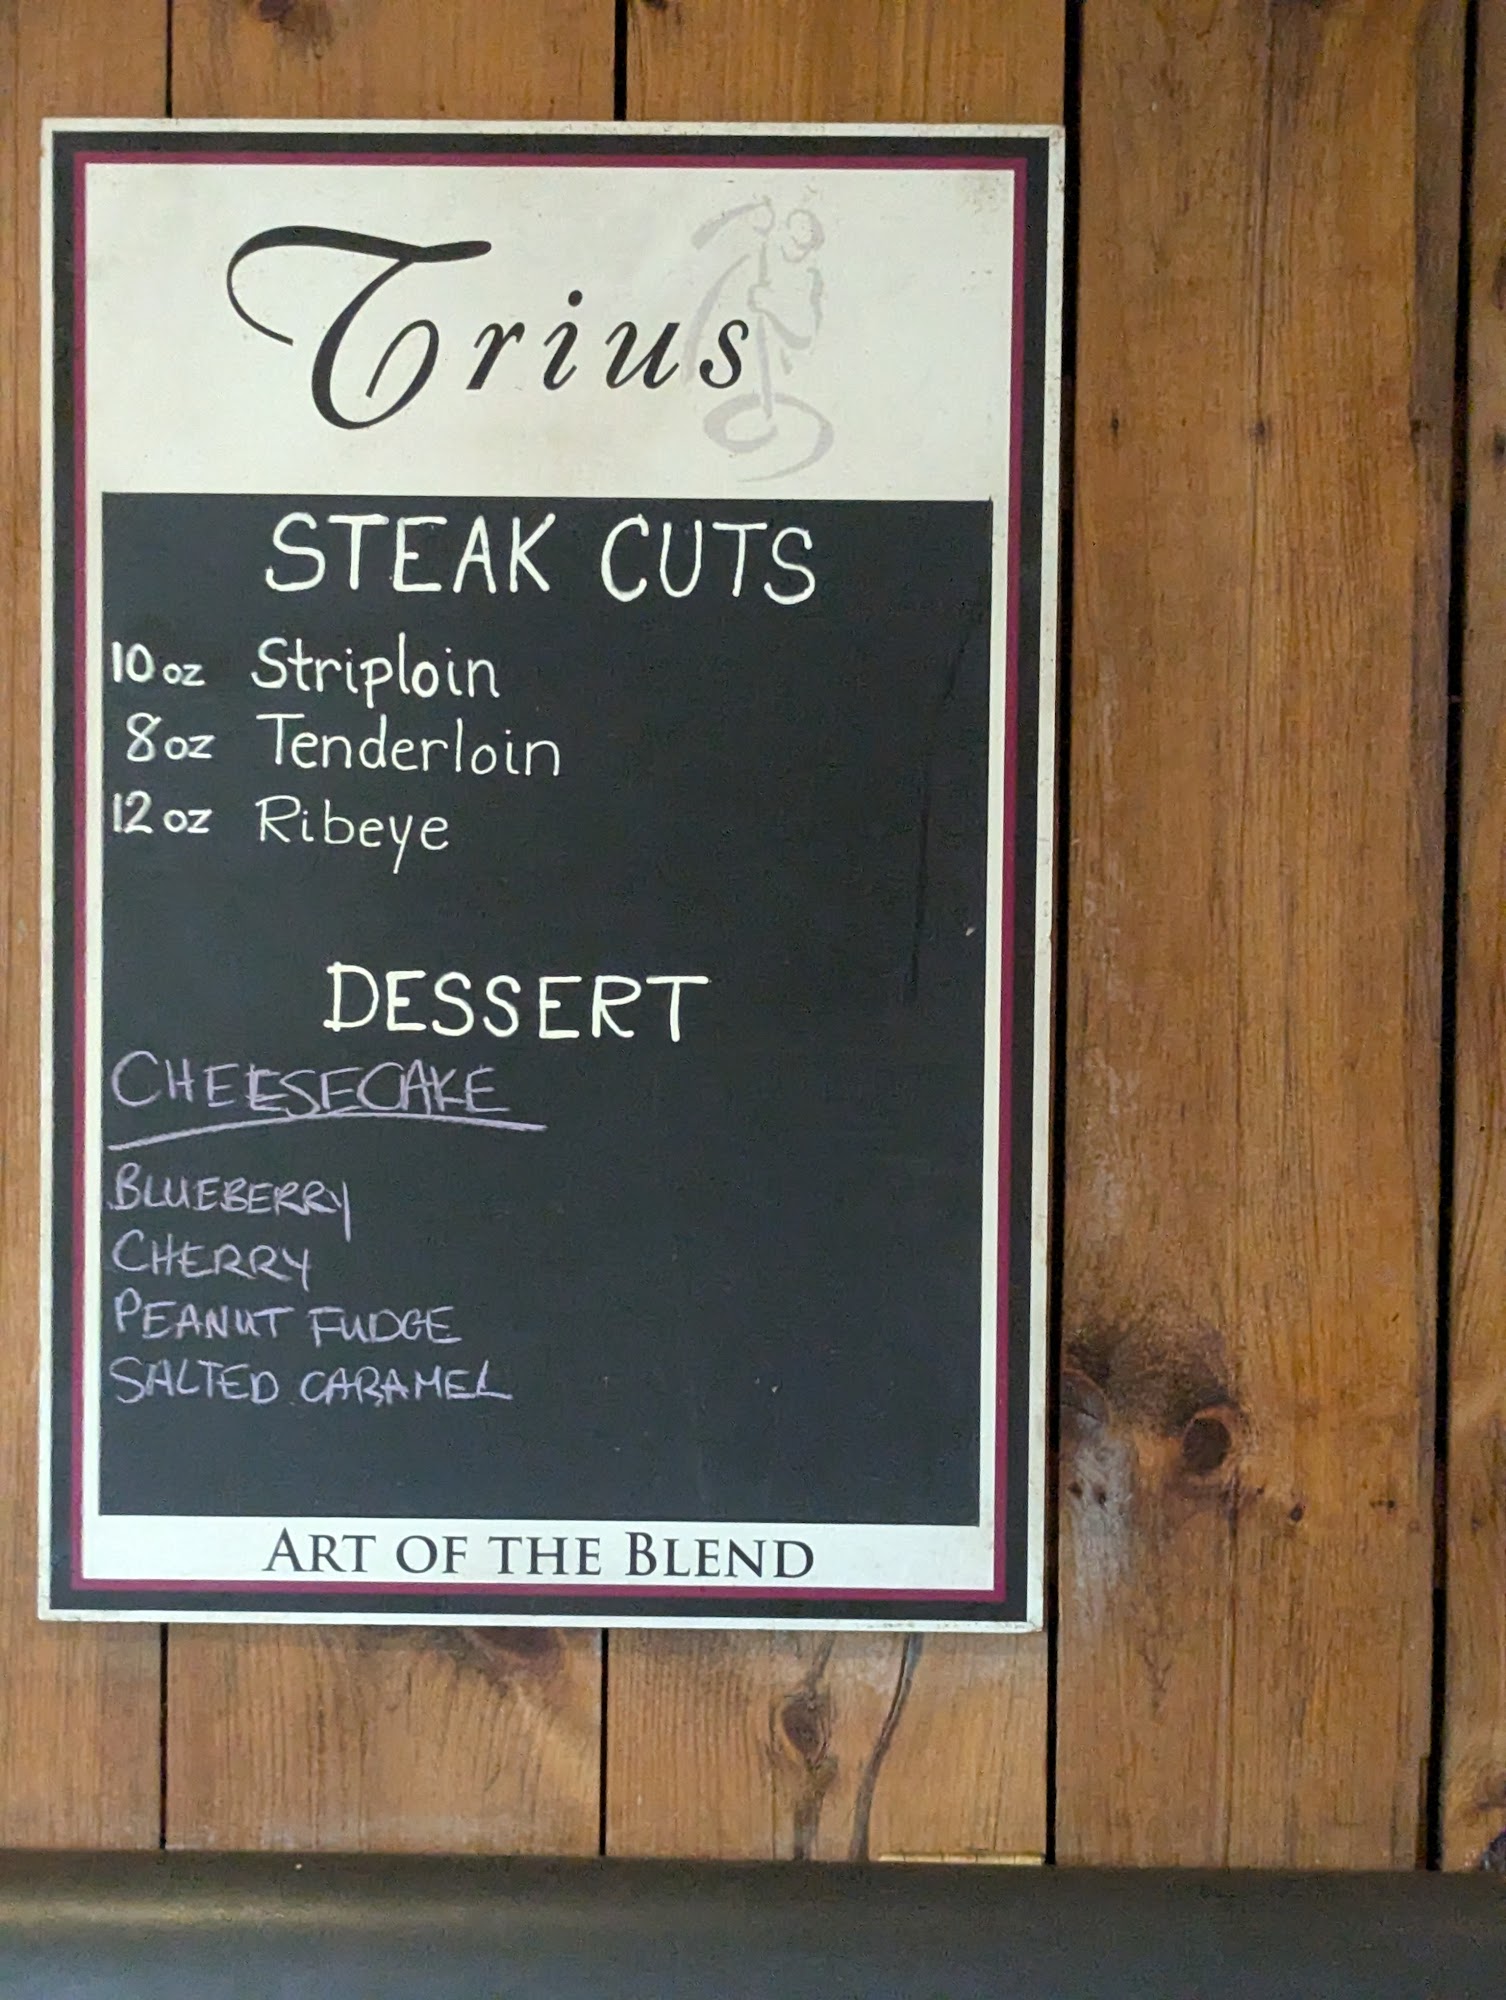 Trius
STEAK CUTS
10 oz Striploin
8 oz Tenderloin
12 oz Ribeye
DESSERT
CHEESECAKE
BLUEBERRY
CHERRY
PEANUT FUDGE
SALTED CARAMEL
ART OF THE BLEND